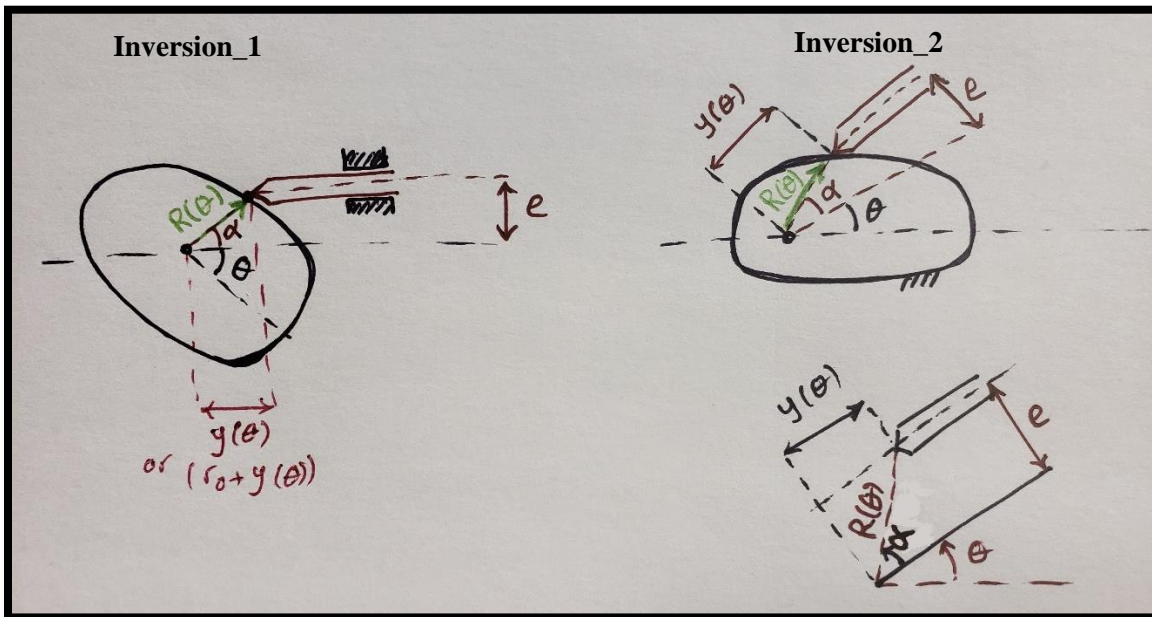 Inversion_1
R(θ)
α
θ
e
y(θ)
or (r₀+y(θ))
Inversion_2
y(θ)
e
R(θ)
α
θ
y(θ)
e
R(θ)
α
θ